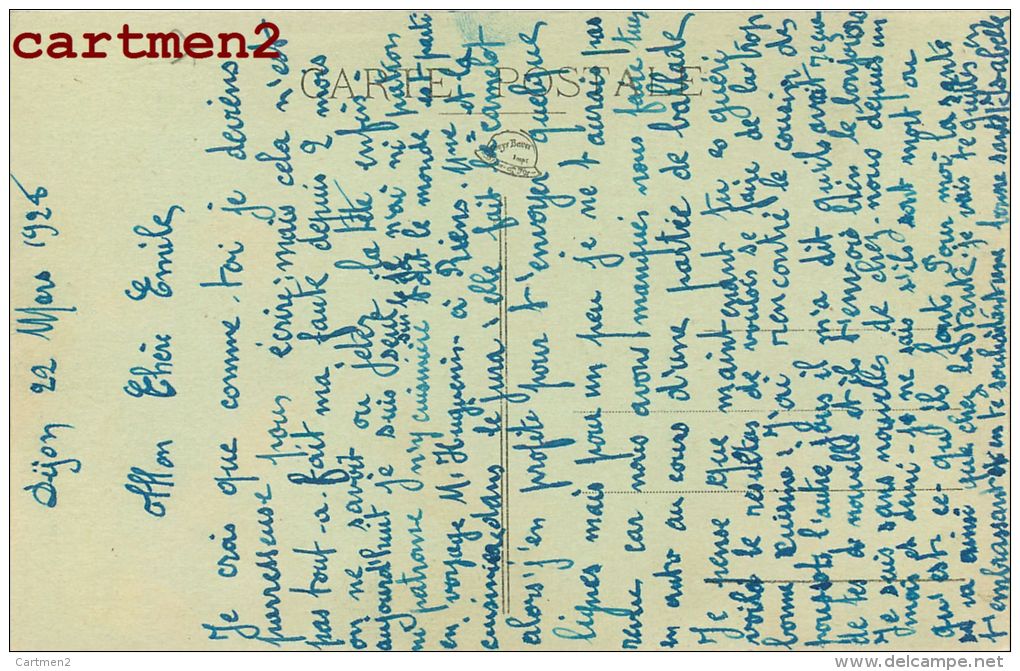 cartmen2
CARTE POSTALE
Dijon 22 Mars 1926
Mon Chéri Emile,
Je crois que comme toi je deviens
parresseuse pour écrire, mais cela n'est
pas tout-a-fait ma faute depuis 2 mois
on ne savait ou jeter la tête enfin
aujourd'hui je suis seul je n'ai ni patron
ni patronne ni cuisinière tout le monde est parti
en voyage M. Huguenin à Mme et la
cuisinière dans le jura elle fait le
alors j'en profite pour t'envoyer quelque
lignes mais pour un peu je ne t'aurai pas
revue car nous avons manqués nous faire tués
en auto au cours d'une partie de ballade
Je pense que maintenant tu es guéri
voila le résultat de vouloir se faire de la trop
bonne cuisine j'ai rencontré le cousin des
l'autre jour il m'a dit qu'ils avait reçu
de tes nouvelle et ils t'envois bien le bonjours
Je suis sans nouvelles de chez-nous depuis un
mois et demi - je ne sais s'ils sont mort ou
qu'est-ce-qu'ils font. Pour moi la santé
va ainsi que chez la tante je vais te quittés en
t-embrassant te souhaitant une bonne santé Isabelle
Cartmen2
http://www.delcampe.net